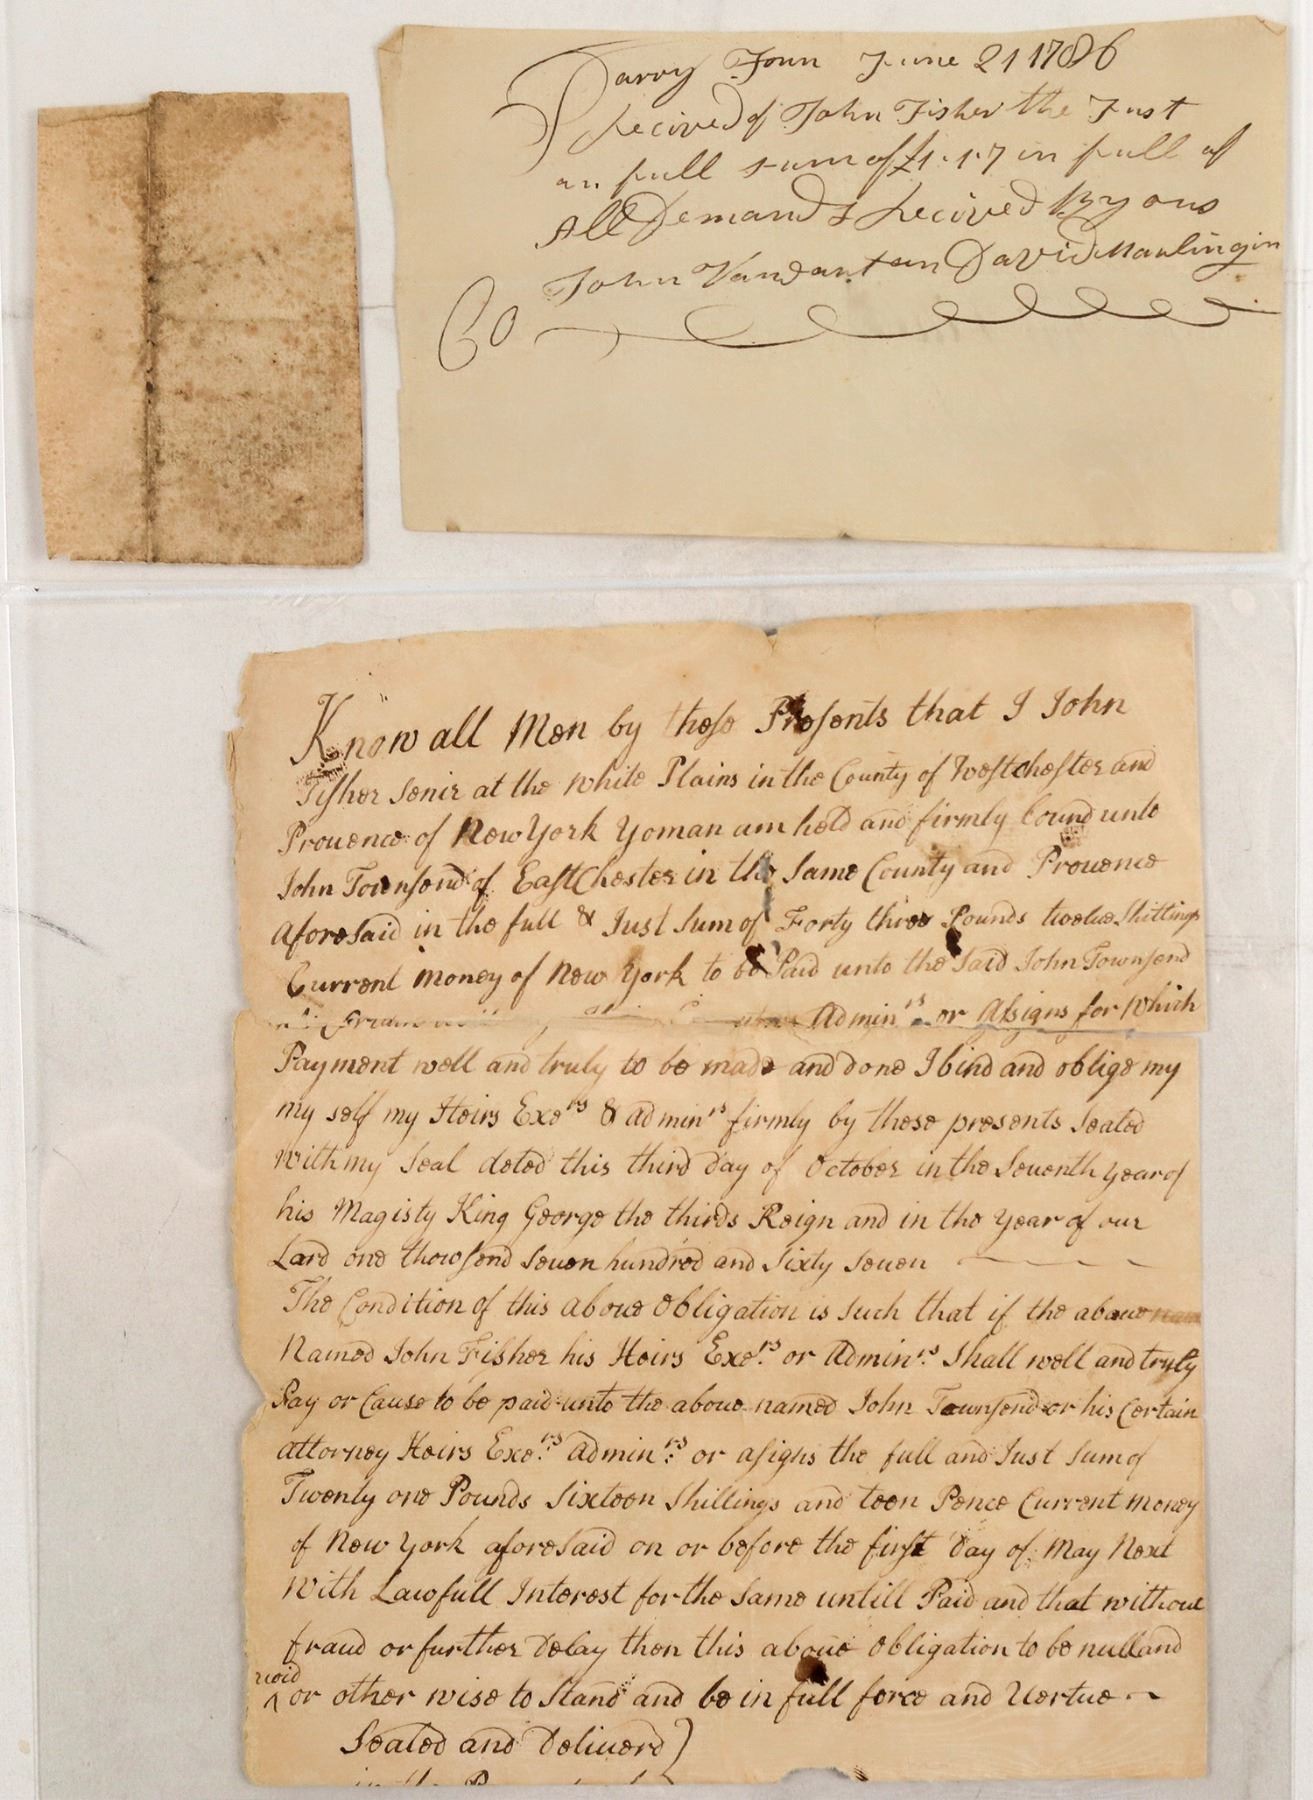 June 21 1786
Recived of John Fisher the Just
an full sum of £1.1.7 in full of
All Demands Recived By ous
John Vandantan David
Co
Know all Men by these Presents that I John
Fisher Senir at the white Plains in the County of Westchester and
Prouence of New York Yoman am held and firmly bound unto
John Townsend of EastChester in the Same County and Prouence
aforesaid in the full & Just Sum of Forty three Pounds twelue Shillings
Current money of New York to be Paid unto the Said John Townsend
Admin.rs or Assigns for which
Payment well and truly to be made and done I bind and oblige my
my self my Heirs Exe.rs & admin.rs firmly by these presents Sealed
With my Seal deted this third day of October in the Seuenth year of
his Magisty King George the thirds Reign and in the year of our
Lard one thowsend seuen hundred and Sixty Seuen
The Condition of this aboue obligation is Such that if the aboue
Named John Fisher his Heirs Exe.rs or Admin.rs Shall well and truly
Pay or Cause to be paid unto the aboue named John Townsend or his Certain
attorney Heirs Exe.rs admin.rs or asigns the full and Just Sum of
Twenty one Pounds Sixteen Shillings and teen Pence Current money
of New York aforesaid on or before the first Day of May Next
With Lawfull Interest for the Same untill Paid and that without
fraud or further Delay then this aboue obligation to be null and
void
^ or other wise to Stand and be in full force and Uertue
Sealed and Deliuerd }
in the